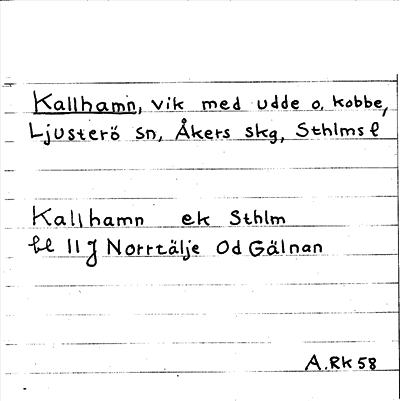 Kallhamn, vik med udde o. kobbe,
Ljusterö sn, Åkers skg, Sthlms l
Kallhamn ek Sthlm
bl 11 J Norrtälje Od Gälnan
A.Rk 58